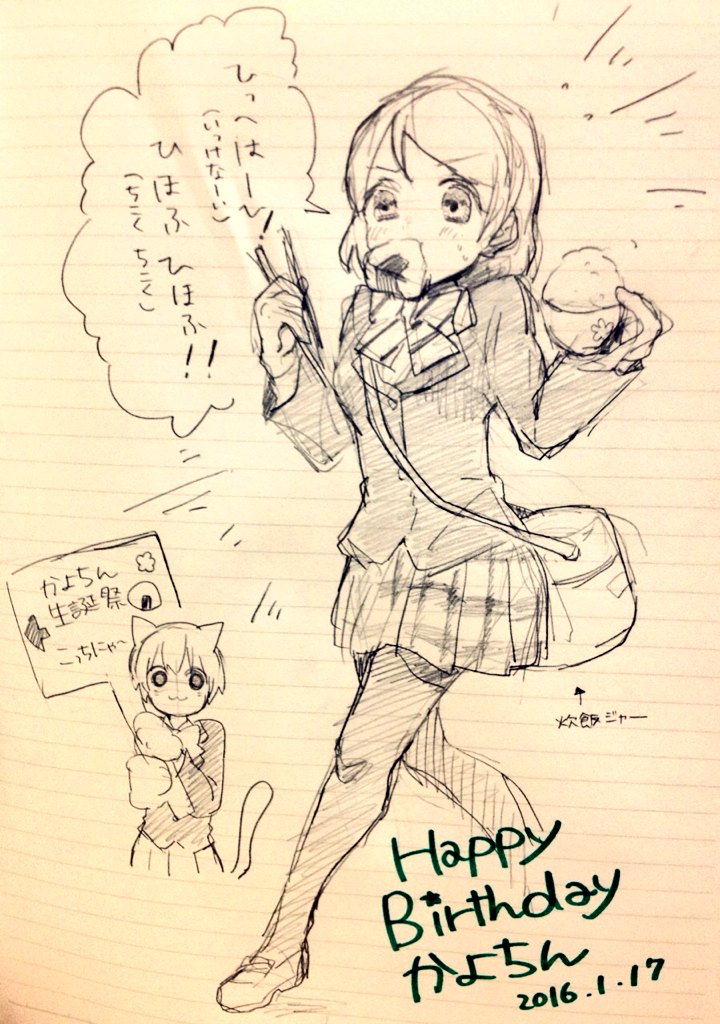 ひっへはーい!
(いっけなーい)
ひほふ ひほふ!!
(ちこく ちこく)
かよちん
生誕祭
こっちにゃ〜
炊飯ジャー
Happy
Birthday
かよちん
2016.1.17